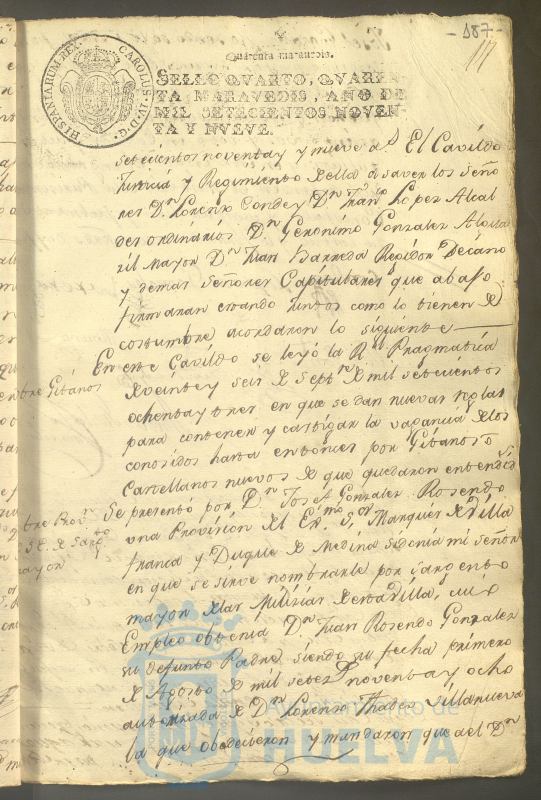 -187-
117
Quarenta maravedis.
HISPANIARUM REX CAROLUS IV D. G.
SELLO QVARTO, QVAREN-
TA MARAVEDIS, AÑO DE
MIL SETECIENTOS NOVEN-
TA Y NVEVE.
setecientos noventay y nueve as. El Cavildo
Justicia y Regimiento de ella a saver los Seño
res Dn. Lorenzo Conde y Dn. Franco. Lopez Alcal
des ordinarios Dn. Geronimo Gonzalez Algua
zil mayor Dn. Juan Barreda Regidor Decano
y demas Señores Capitulares que abajo
firmaran estando juntos como lo tienen de
costumbre acordaron lo siguiente
En este Cavildo se leyó la Rl. Pragmatica
de veinte y seis de Septre. de mil setecientos
ochenta y tres en que se dan nuevas reglas
para contener y castigar la vagancia de los
conosidos hasta entonces por Gitanos o
Castellanos nuevos de que quedaron entendidos
Se presentó por Dn. Josef Gonzalez Rosendo
una Provision del Exmo. Sor. Marques de Villa
franca y Duque de Medina Sidonia mi Señor
en que se sirve nombrarle por sargento
mayor de las Milizias de esta Villa, cuio
Empleo obtenia Dn. Juan Rosendo Gonzalez
su defunto Padre siendo su fecha primero
de Agosto de mil setezs. noventa y ocho
autorizada de Dn. Lorenzo Thadeo Villanueva
la que obedecieron y mandaron que al Dn.
sobre Gitanos
sobre Provn.
de Sargto.
mayor
Ayuntamiento de
HUELVA